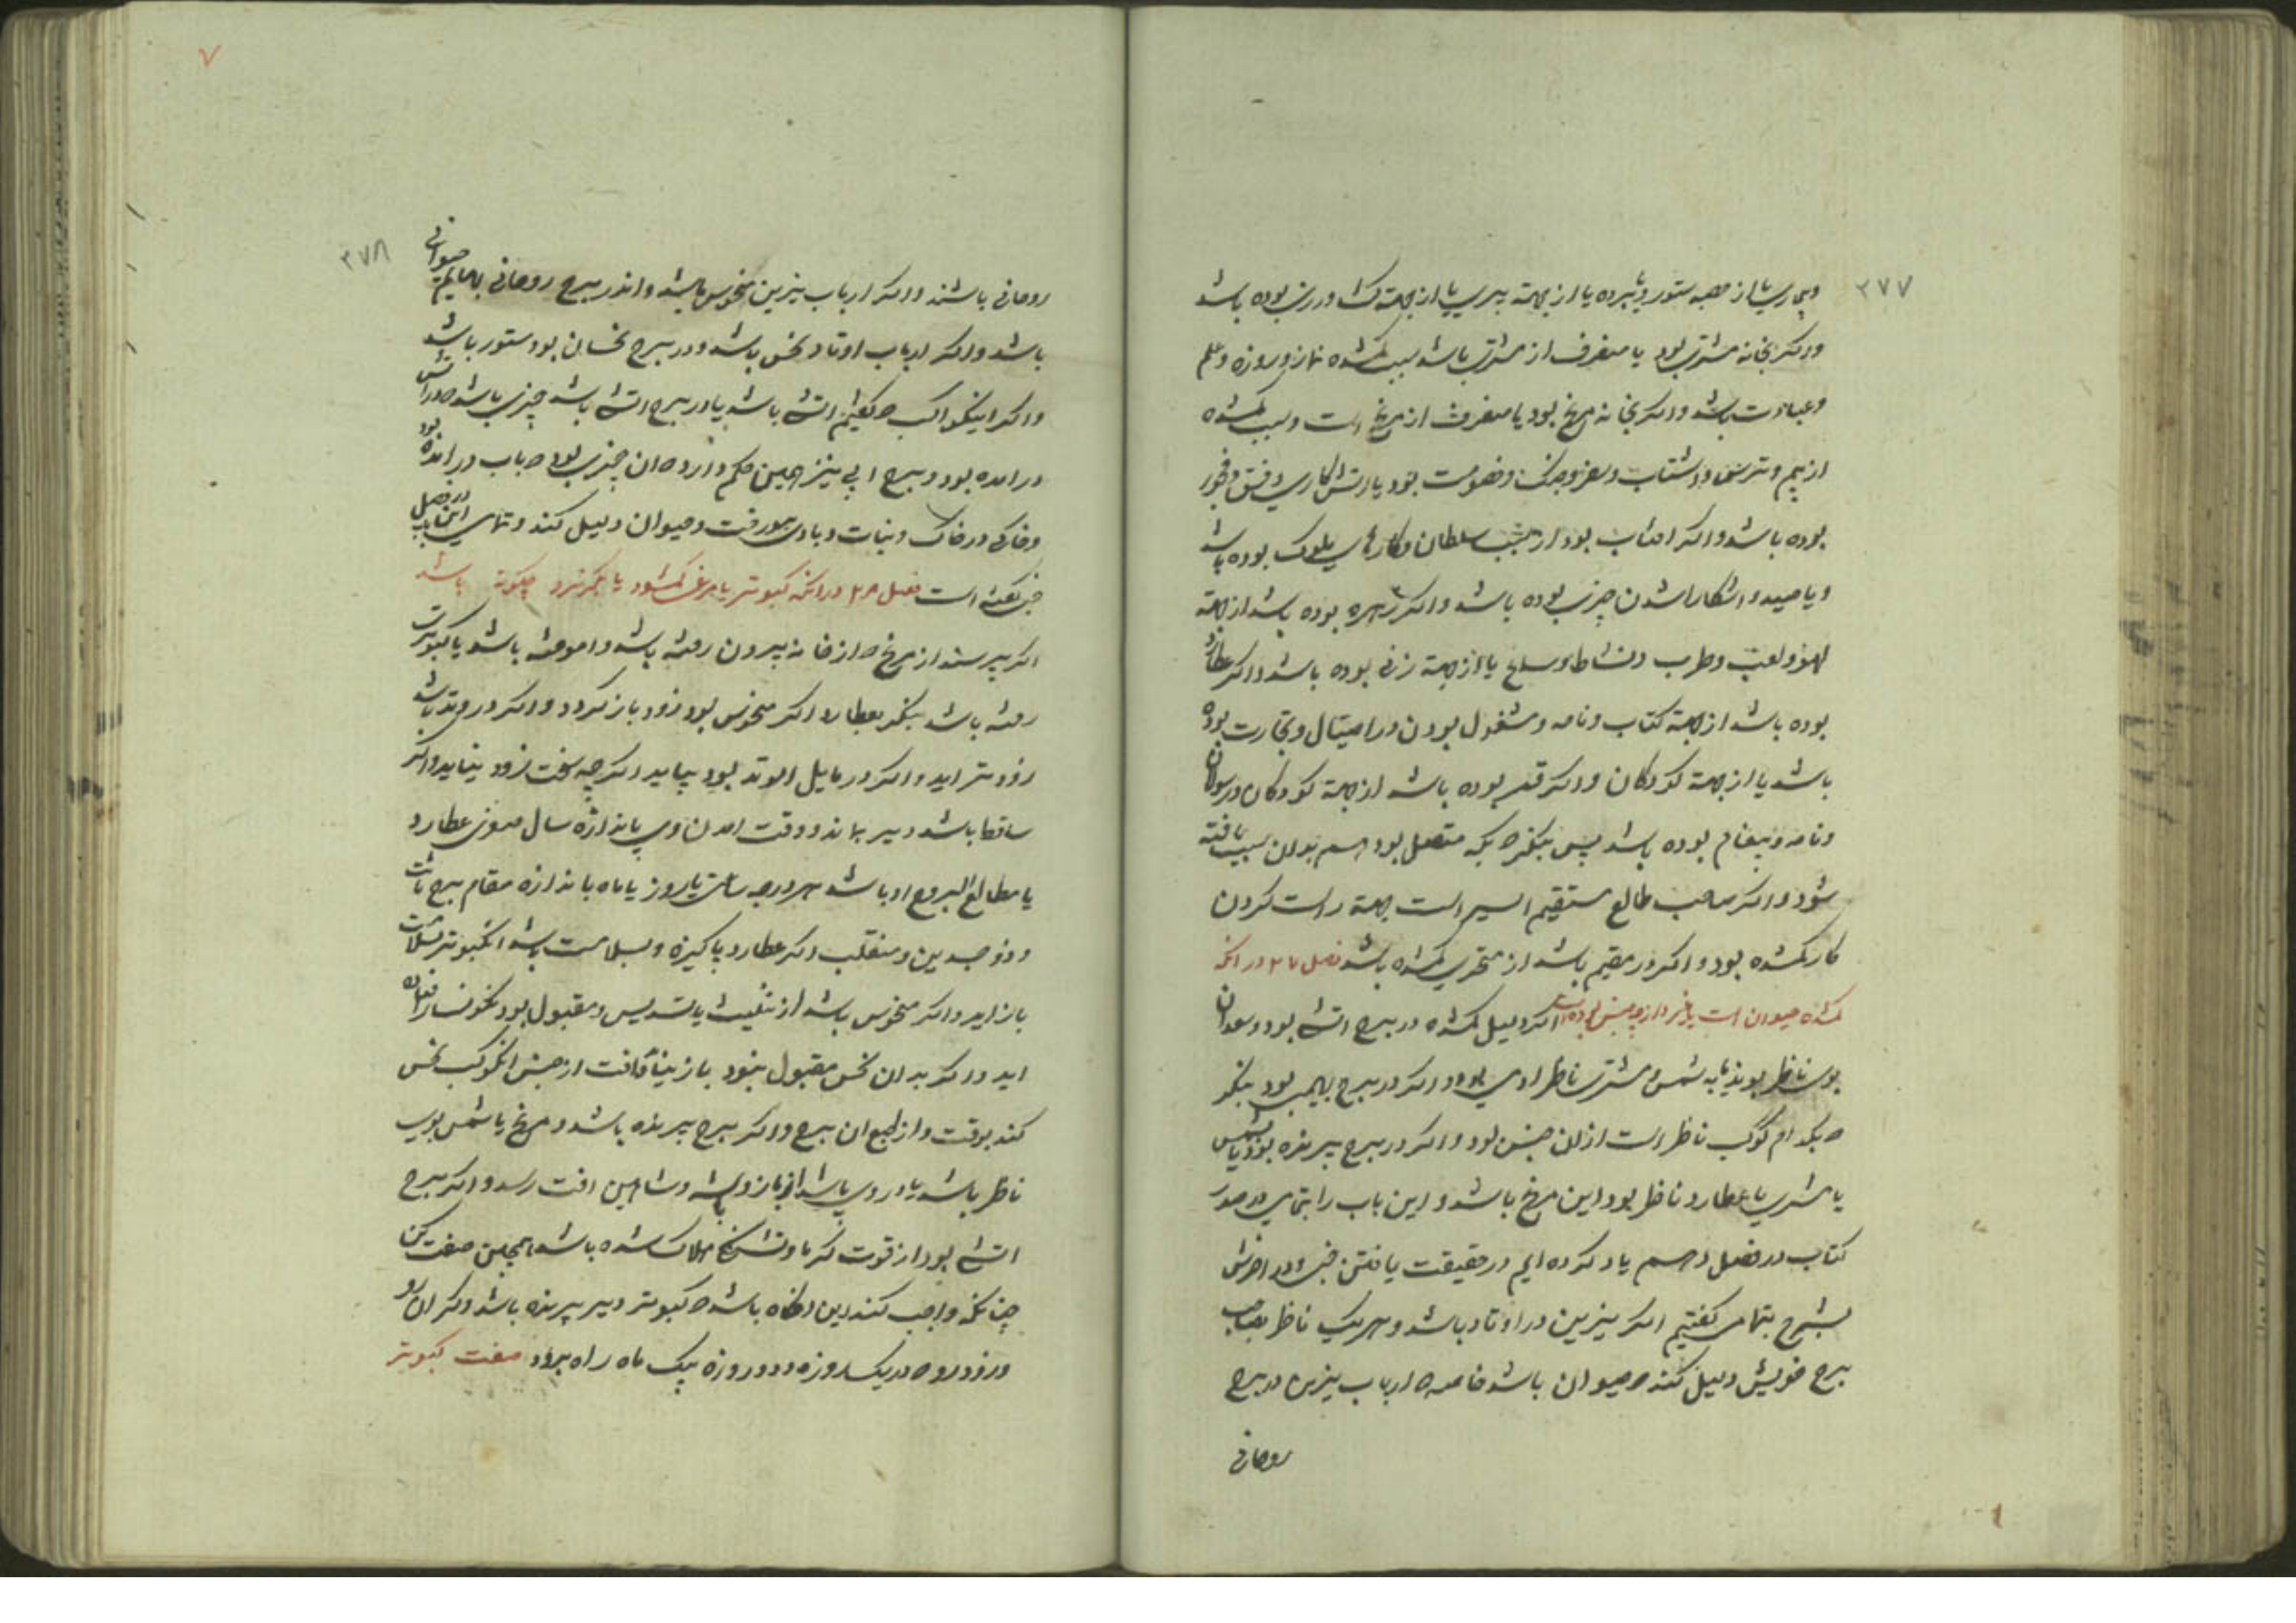 ۲۷۷
وبیماری یا از جهة ستور یا برده یا از جهة پیری یا از جهة کشاورزی بوده باشد
واکر بخانه مشتری بود یا منصرف از مشتری باشد سبب کمشده نماز و روزه و علم
وعبادت باشد واکر بخانه مریخ بود یا منصرف از مریخ است وسبب کمشده
از بیم وترس و شتاب وسفر وجنک وخصومت بود یا آتش کاری وفسق وفجور
بوده باشد واکر افتاب بود از سبب سلطان وکارهای ملوک بوده باشد
ویا صید و اشکارا شدن چیزی بوده باشد واکر زهره بوده باشد از جهة
لهو ولعب وطرب ونشاط وصلح یا از جهة زنی بوده باشد واکر عطارد
بوده باشد از جهة کتاب ونامه ومشغول بودن در احتیال وتجارت بوده
باشد یا از جهة کودکان واکر قمر بوده باشد از جهة کودکان ورسولان
ونامه وپیغام بوده باشد پس بنکر که بکه متصل بود هم بدان سبب یافته
شود واکر صاحب طالع مستقیم السیر است جهة راست کردن
کار کمشده بود واکر در مقیم باشد از متحری کمشده باشد فصل ۲۷ در انکه
کمشده حیوان است یا غیر و از چه جنس بوده است اکر دلیل کمشده در برج اتشی بود وسعدان
بوی ناظر بوند یا به شمس ومشتری ناظر ادمی بود واکر در برج بهیمی بود بنکر
که بکدام کوکب ناظر است از ان جنس بود واکر در برج پرنده بود ویا شمس
یا مشتری یا عطارد ناظر بود این مرغ باشد و این باب را بتمامی در صدر
کتاب در فصل دهم یاد کرده ایم در حقیقت یافتن خبی ودر اخرش
بشرح بتمامی کفتیم اکر نیرین در اوتاد باشد وهر یک ناظر بصاحب
برج خویش دلیل کند که حیوان باشد خاصه که ارباب نیرین در برج
روحانی
۲۷۸
روحانی باشند واکر ارباب نیرین منحوس باشد واندر برج روحانی بابهایم حیوانی
باشد واکر ارباب اوتاد نحس باشد ودر برج نحسان بود ستور باشد
واکر اینکواکب که کفتیم اتشی باشد یا در برج اتشی باشد چیزی باشد که در اتش
در امده بود وبرج ابی نیز همین حکم دارد که ان چیزی بود که باب در امده بود
وخاکی در خاک ونبات وبادی بمورفت وحیوان دلیل کند وتمامی این باب در فصل
خبی کفته است فصل ۲۸ در انکه کبوتر یا مرغ کمشود یا بکریزد چکونه باشد
اکر پرسند از مرغ که از خانه بیرون رفته باشد واموخته باشد یا کبوتری
رفته باشد بنکر بعطارد اکر منحوس بود زود باز کردد واکر در وتد باشد
زودتر اید واکر در مایل الوتد بود بیاید اکرچه سخت زود نیاید واکر
ساقط باشد دیر بماند ووقت امدن وی باندازه سال صغری عطارد
یا مطالع البروج او باشد هر درجه ساعتی یا روز یا ماه باندازه مقام برج ثابت
وذو جسدین ومنقلب اکر عطارد پاکیزه وبسلامت باشد انکبوتر بسلامت
باز اید واکر منحوس باشد از تثلیث یا تسدیس ومقبول بود نکونسار افتاده
اید واکر بدان نحس مقبول نبود باز نیاید وافت از جنس انکوکب نحس
کند بوقت واز طبع ان برج واکر برج پرنده باشد ومریخ یا شمس بوی
ناظر باشد یا در وی باشد از باز وباشه وشاهین افت رسد واکر برج
اتشی بود از قوت کرما وتشنکی هلاک شده باشد همچنین صفت کن
چنانکه واجب کند این انکاه باشد که کبوتر دیر پرنده باشد واکر ان بود
ورود رو که در یکساروزه ودو روزه یک ماه راه برود صفت کبوتر